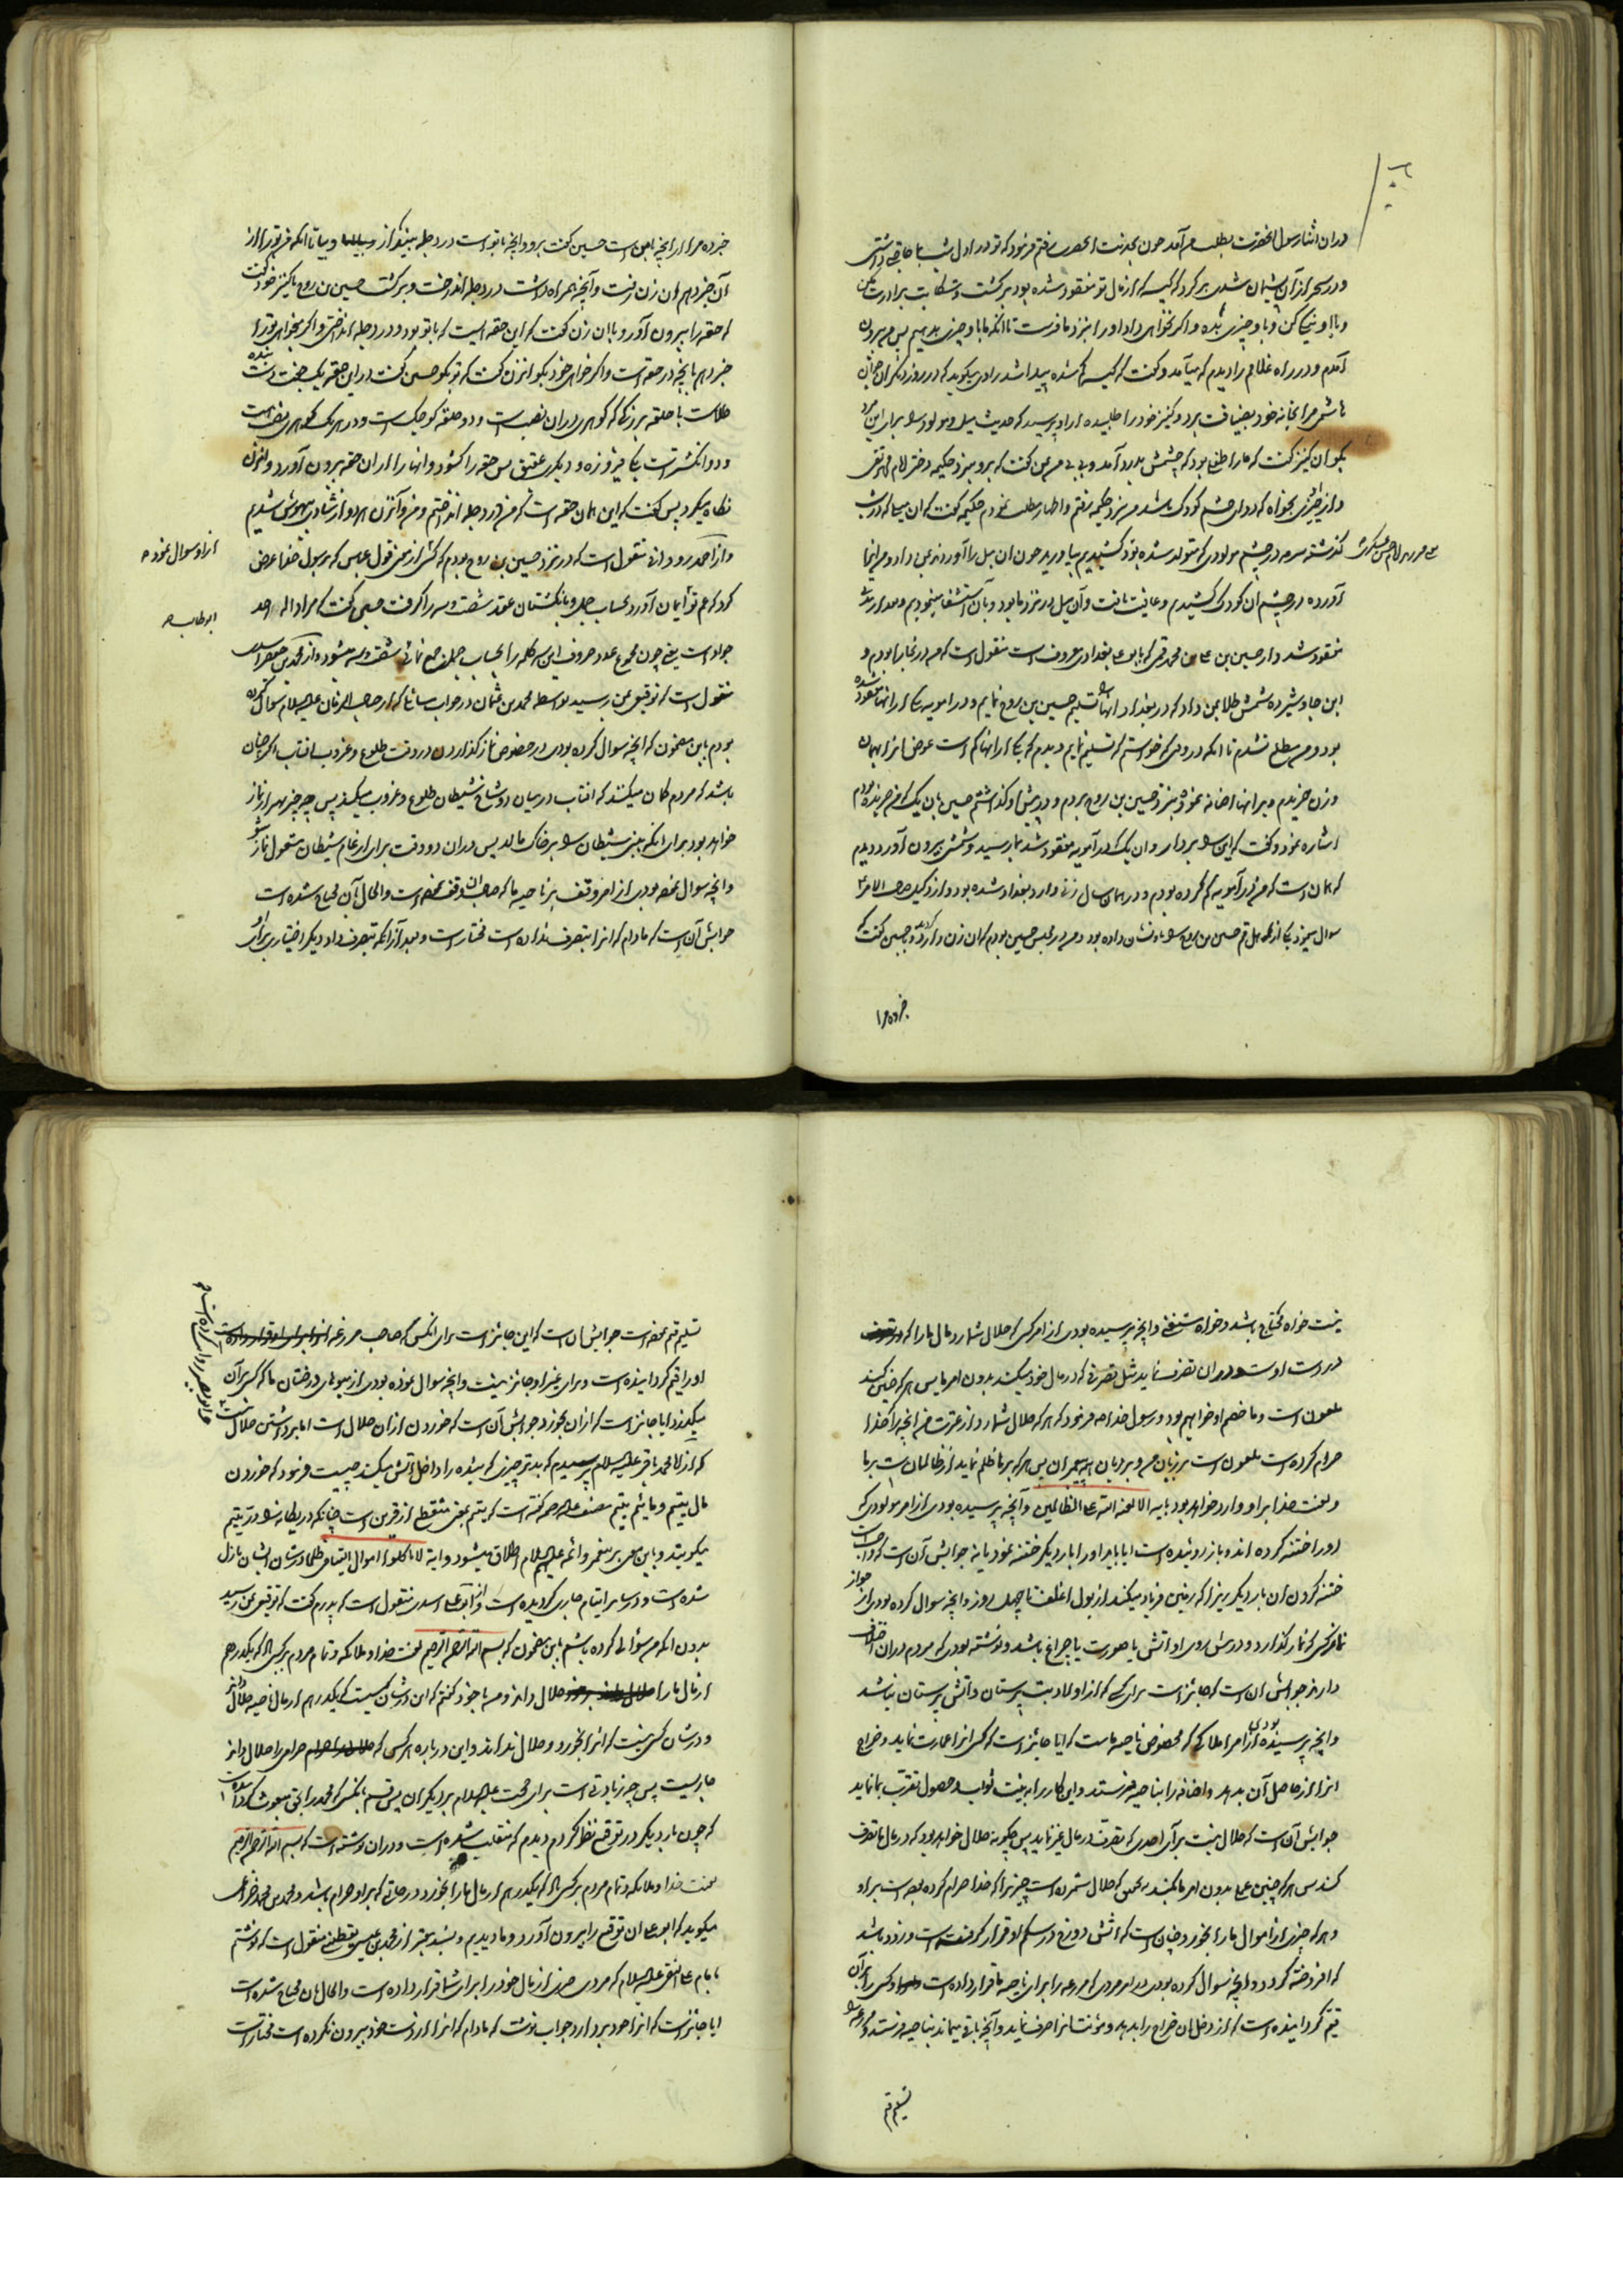 دران اثنا رسول انحضرت بطلب من آمد چون بخدمت انحضرت رفتم فرمود که تو در اول شب با ما حاجتی داشتی
و در سحر از آن پشیمان شدی برگرد که کیسه که از مال تو مفقود شده بود برگشت و شکایت برادرت مکن
و با او نیکی کن و با او چیزی بده و اگر نخواهی داد او را بنزد ما فرست تا انکه ما با و چیزی بدهیم پس من بیرون
آمدم و در راه غلامم را دیدم که میآمد و گفت که کیسه گم شده پیدا شد
هاشمی مرا بخانه خود بضیافت برد و کنیز خود را طلبیده از او پرسید که حدیث میل و مولود را برای این مرد
بگو ان کنیز گفت که ما را طفلی بود که چشمش بدرد آمد و بی بی من بمن گفت که برو بنزد حکیمه دختر امام محمد تقی
و از او چیزی بخواه که دوای چشم کودک باشد من نزد حکیمه رفتم و اظهار مطلب نمودم حکیمه گفت که ان میل که در شب
گذشته سرمه در چشم مولودی که متولد شده بود کشیدیم بیاورید چون ان میل را آوردند بمن داد و من انرا
آورده در چشم ان کودک کشیدم و عافیت یافت و آن میل در نزد ما بود و بآن استشفا مینمودیم و بعد از مدتی
مفقود شد و از حسین بن علی بن محمد قمی که بابو علی بغدادی معروف است منقول است که من در بخارا بودم و
ابن جاوشیر ده شمش طلا بمن داد که در بغداد انها را تسلیم حسین بن روح نمایم و در امویه یکی از انها مفقود شده
بود و من مطلع نشدم تا انکه در وقتی که خواستم که تسلیم نمایم دیدم که یکی از انها کم است عوض انرا بهمان
وزن خریدم و بر انها اضافه نموده بنزد حسین بن روح بردم و در پیش او گذاشتم حسین بان یک که من خریده بودم
اشاره نمود و گفت که این را بردار و ان یک که در آمویه مفقود شد بما رسید و شمش بیرون آورد دیدم
که همان است که من در آمویه گم کرده بودم و در همان سال زنی وارد بغداد شده بود و از وکیل صاحب الامر
سوال مینمود یکی از اهل قم حسین بن روح را باو نشان داده بود و من در مجلس حسین بودم که ان زن وارد گردید و بحسین گفت که
خبر ده مرا
خبر ده مرا از انچه با من است حسین گفت برو و انچه با تو است در دجله بینداز و بیا تا انکه من تو را از
آن خبر دهم ان زن رفت و آنچه همراه داشت در دجله انداخت و برگشت حسین بن روح با کنیز خود گفت
که حقه را بیرون آورد و با ان زن گفت که این حقه ایست که با تو بود و در دجله انداختی و اگر بخواهی تو را
خبر دهم بانچه در حقه است و اگر خواهی خود بگو انزن گفت که تو بگو حسین گفت در این حقه یک جفت دست بنده
طلاست با حلقه بزرگی که گوهری در ان نصب است و دو حلقه کوچک است و در هر یک گوهری نصب است
و دو انگشتر است یکی فیروزه و دیگری عقیق پس حقه را گشود و انها را از ان حقه بیرون آورد و انزن
نگاه میکرد پس گفت که این همان حقه است که من در دجله انداختم و من و آنزن هر دو از شادی بیهوش شدیم
منقول است که در نزد حسین بن روح بودم که کسی از معنی قول عباس که برسول خدا عرض از او سوال نمود
کرد که عم تو ابو طالب ایمان آورد بحساب جمل و بانگشتان عقد شصت و سه را گرفت حسین گفت که مراد اله احد
جواد است یعنی چون مجموع عدد حروف این سه کلمه را بحساب جمل جمع نمائی شصت و سه میشود و از محمد بن جعفر اسدی
منقول است که توقیعی بمن رسید بواسطه محمد بن عثمان در جواب مسائلی که از صاحب الزمان علیه السلام سوال کرده
بودم باین مضمون که انچه سوال کرده بودی در خصوص نماز گذاردن در وقت طلوع و غروب افتاب اگر چنان
باشد که مردم گمان میکنند که افتاب در میان دو شاخ شیطان طلوع و غروب میکند پس چه چیز بهتر از نماز
خواهد بود برای انکه بینی شیطان را بر خاک مالد پس در ان دو وقت برای ارغام شیطان مشغول نماز شو
و انچه سوال نموده بودی از امر وقف بر ناحیه ما که صاحب ان وقف نموده است و الحال بآن محتاج شده است
جوابش آن است که مادام که انرا بتصرف نداده است مختار است و بعد از انکه بتصرف داد دیگر اختیار برای او
نیست خواه محتاج باشد و خواه مستغنی و انچه پرسیده بودی از امر کسی که حلال شمارد مال ما را که
در دست اوست و در ان تصرف نماید مثل تصرفی که در مال خود میکند بدون امر ما پس هر که چنین کند
ملعون است و ما خصم او خواهیم بود و رسول خدا ص فرمود که هر که حلال شمارد از عترت من انچه را که خدا
حرام کرده است ملعون است بر زبان من و بر زبان همه پیغمبران پس هر که بر ما ظلم نماید از ظالمان است بر ما
و لعنت خدا بر او وارد خواهد بود بایه الا لعنة الله علی الظالمین و آنچه پرسیده بودی از امر مولودی که
او را ختنه کرده اند و باز روئیده است ایا باید او را بار دیگر ختنه نمود یا نه جوابش آن است که واجب است
ختنه کردن ان بار دیگر زیرا که زمین فریاد میکند از بول اغلف تا چهل روز و انچه سوال کرده بودی از جواز
نماز کسی که نماز گذارد و در پیش روی او اتش یا صورت یا چراغ باشد و نوشته بودی که مردم در ان اختلاف
دارند جوابش ان است که جائز است برای کسی که از اولاد بت پرستان و آتش پرستان نباشد
و انچه پرسیده بودی از امر املاکی که مخصوص ناحیه ماست که ایا جائز است که کسی انرا عمارت نماید و خراج
انرا از حاصل آن بدهد و اضافه را بناحیه فرستد و این کار را به نیت ثواب و حصول تقرب بما نماید
جوابش آن است که حلال نیست بر آی احدی که تصرف در مال غیر نماید پس چگونه حلال خواهد بود که در مال ما تصرف
کند پس هر که چنین عملی بدون امر ما بکند بتحقیق که حلال شمرده است چیزیرا که خدا حرام کرده بوده است بر او
و هر که چیزی از اموال ما را بخورد چنان است که اتش دوزخ در شکم او قرار گرفته است و زود باشد
که افروخته گردد و انچه سوال کرده بودی در امر مردی که مزرعه را برای ناحیه ما قرار داده است و کسی را بر آن
قیم گردانیده است که از دخل ان خراج را بدهد و مونت انرا صرف نماید و آنچه باقی بماند بناحیه فرستد و مزرعه را
تسلیم قیم
تسلیم قیم نموده است جوابش ان است که این جائز است برای انکس که صاحب مزرعه
او را قیم گردانیده است و برای غیر او جائز نیست و انچه سوال نموده بودی از میوهای درختان ما که کسی بر آن
میگذرد ایا جائز است که از ان بخورد جوابش آن است که خوردن از ان حلال است اما برداشتن حلال نیست
که از امام محمد باقر علیه السلام پرسیدم که بدتر چیزی که بنده را داخل آتش میکند چیست فرمود که خوردن
مال یتیم و مائیم یتیم مصنف علیه الرحمه گفته است که یتیم بمعنی منقطع از قرین است چنانکه در یکتا را در یتیم
میگویند و باین معنی بر پیغمبر و ائمه علیهم السلام اطلاق میشود و ایه لا تاکلوا اموال الیتامی ظلما در شان ایشان نازل
شده است و در سایر ایتام جاری گردیده است و از ابو علی اسدی منقول است که پدرم گفت که توقیعی بمن رسید
بدون انکه من سؤالی کرده باشم باین مضمون که بسم الله الرحمن الرحیم لعنت خدا و ملائکه و تمام مردم بر کسی که یکدرهم
از مال ما را حلال داند و من با خود گفتم که این در شان کسیست که یکدرهم از مال ناحیه حلال داند
و در شان کسی نیست که انرا بخورد و حلال نداند و این در باره هر کسی که حرامی را حلال داند
جاریست پس چه زیادتی است برای حجت علیه السلام بر دیگران پس قسم بانکس که محمد را بحق مبعوث گردانیده است
که چون بار دیگر در توقیع نظر کردم دیدم که منقلب شده است و در ان نوشته است که بسم الله الرحمن الرحیم
لعنت خدا و ملائکه و تمام مردم بر کسی که یکدرهم از مال ما را بخورد در حالتی که بر او حرام باشد و محمد بن محمد خزاعی
میگوید که ابو علی ان توقیع را بیرون آورد و ما دیدیم و بسند معتبر از محمد بن عیسی یقطینی منقول است که نوشتم
بامام علی النقی علیه السلام که مردی چیزی از مال خود را برای شما قرار داده است و الحال بان محتاج شده است
ایا جائز است که انرا خود بردارد جواب نوشت که مادام که انرا از دست خود بیرون نکرده است مختار است